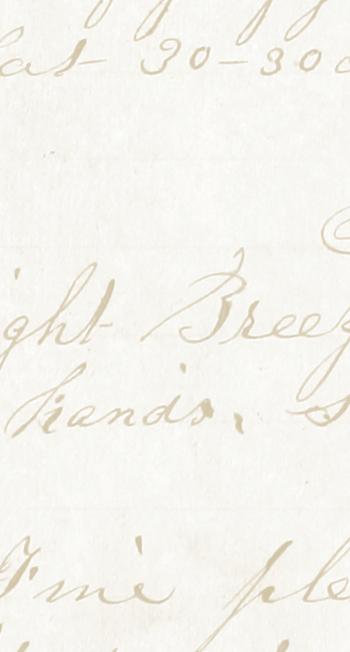 Lat 30-30
ght Breez
hands. S
Fine ple